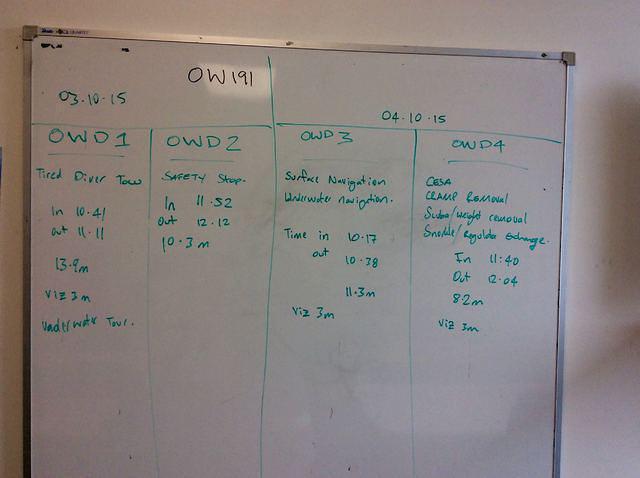 OW191
03.10.15
04.10.15
OWD1
Tired Diver Tow
In 10.41
out 11.11
13.9m
Viz 3m
Underwater Tour.
OWD2
SAFETY Stop.
In 11.52
Out 12.12
10.3m
OWD3
Surface Navigation
Underwater navigation.
Time in 10.17
out 10.38
11.3m
Viz 3m
OWD4
CESA
CRAMP REMOVAL
Scuba/weight removal
Snorkle/Regulator Exchange.
In 11:40
Out 12.04
8.2m
Viz 3m